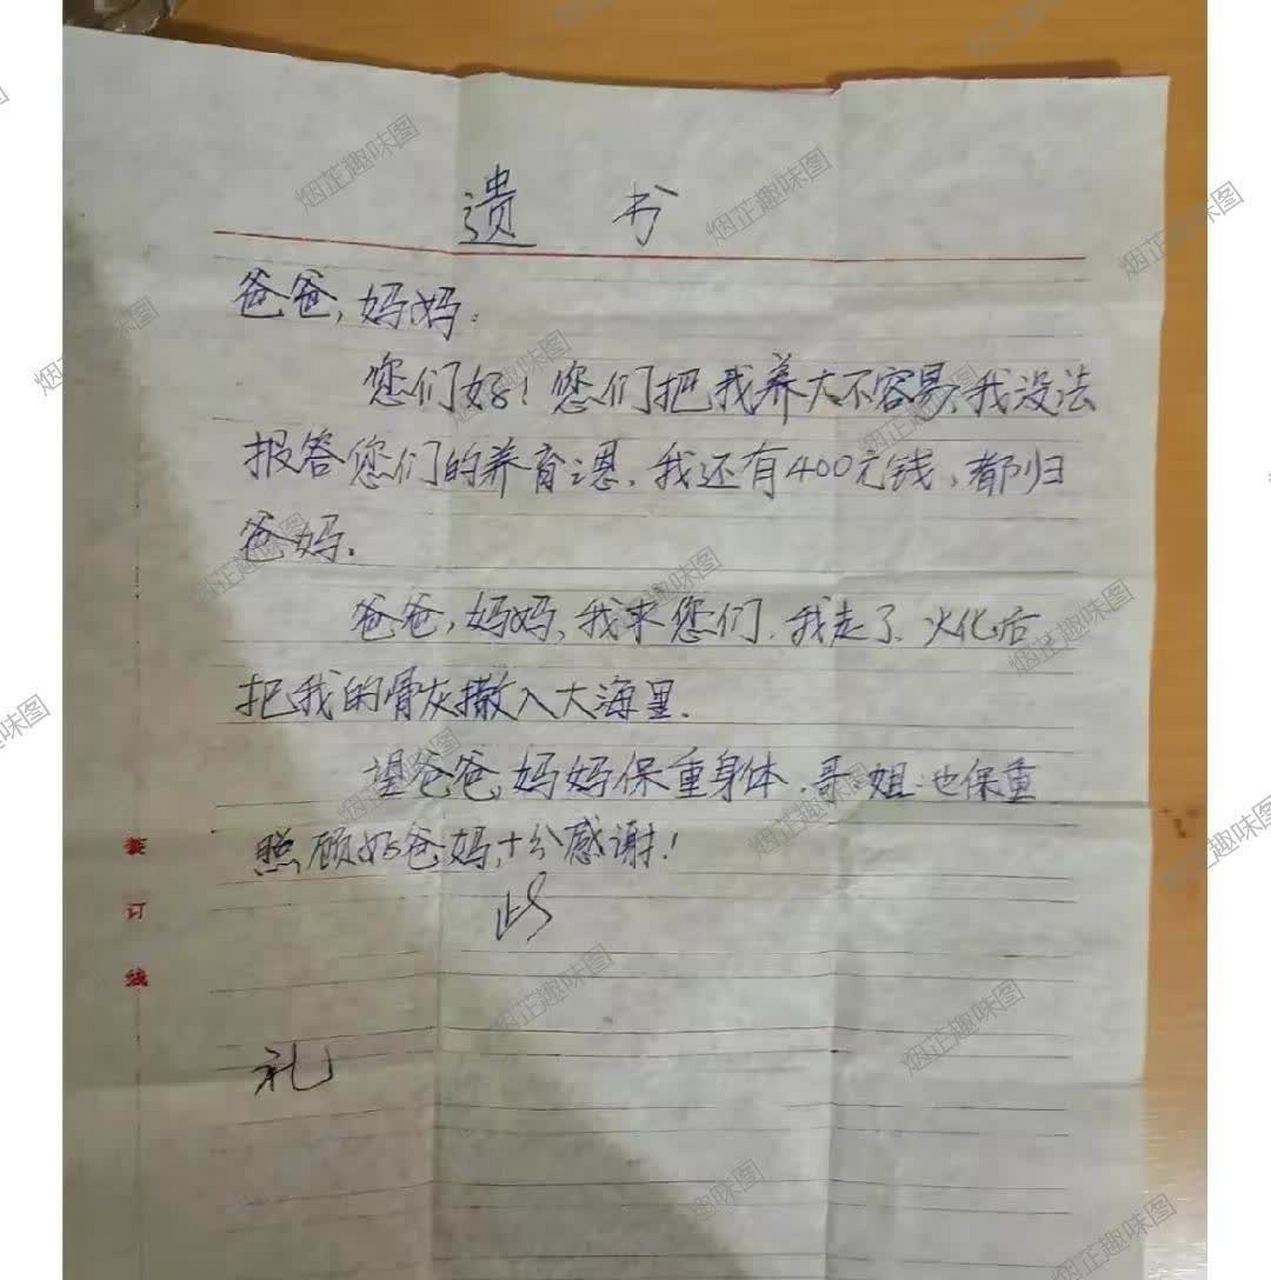 遗书
爸爸，妈妈：
您们好！您们把我养大不容易，我没法
报答您们的养育之恩，我还有400元钱，都归
爸妈。
爸爸，妈妈，我求您们，我走了，火化后
把我的骨灰撒入大海里。
望爸爸，妈妈保重身体，哥，姐，也保重
照顾好爸妈，十分感谢！
此
礼
装订线
烟芷趣味图